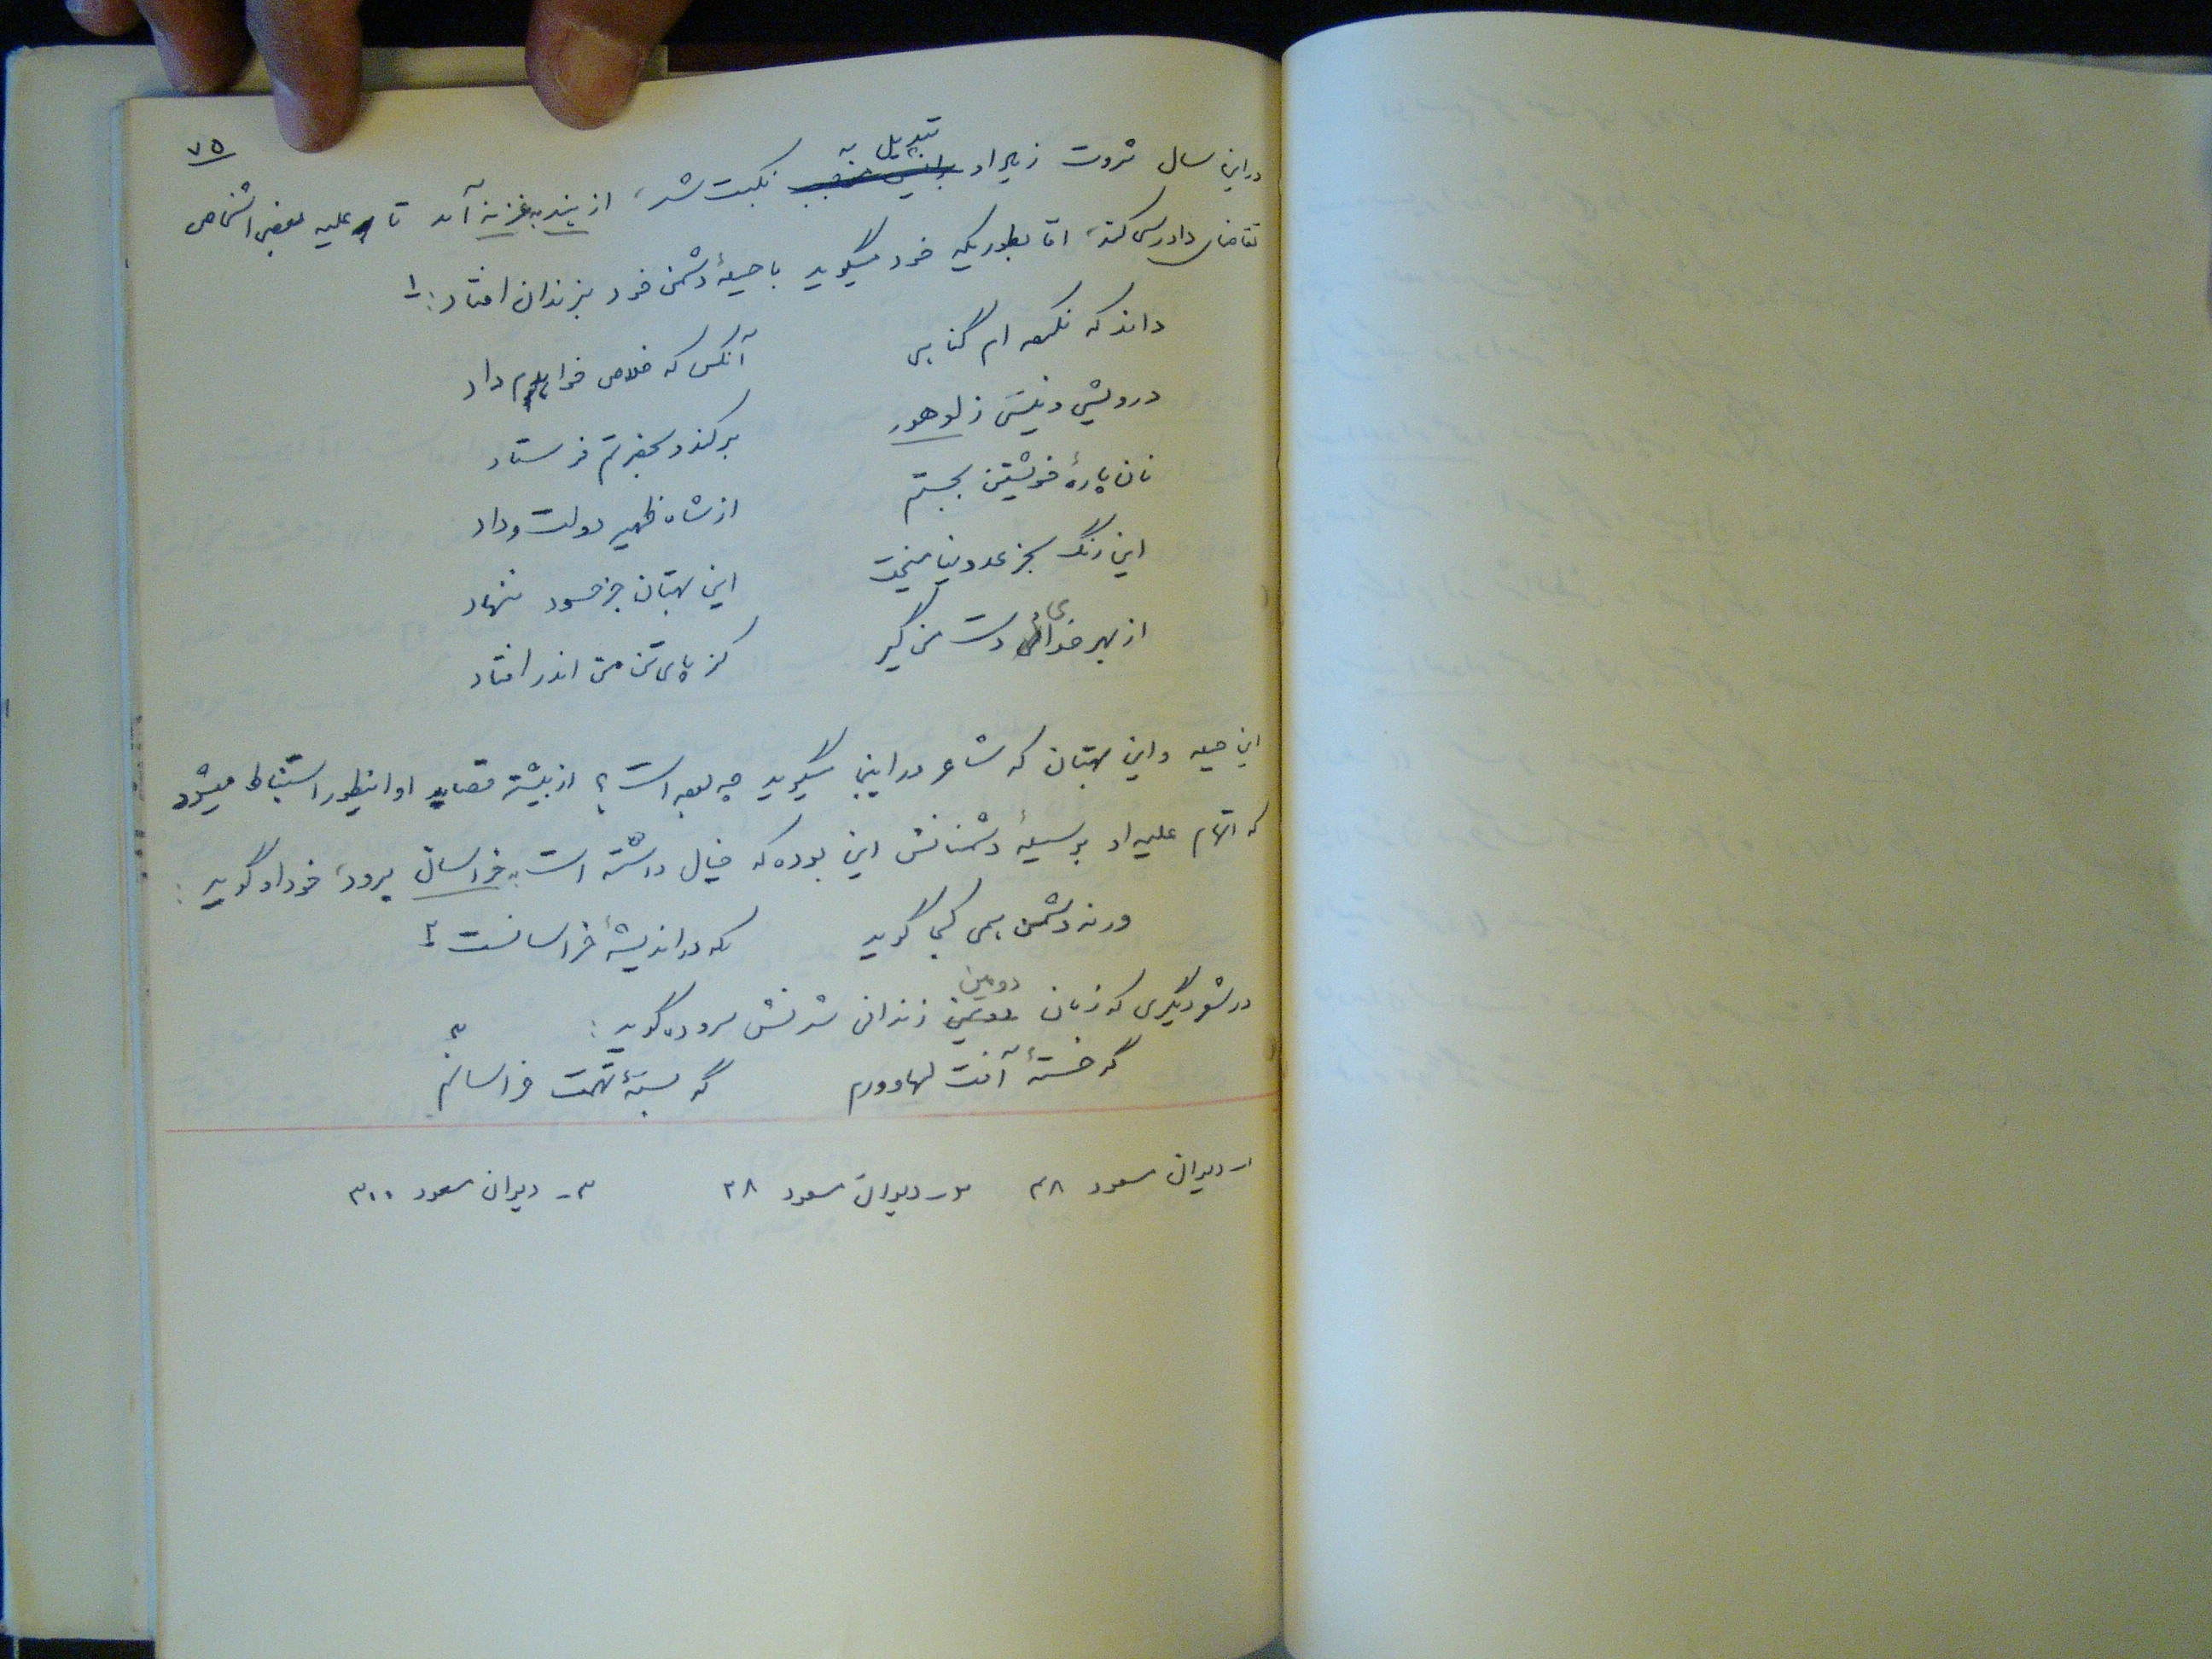 ۷۵
در این سال ثروت زیاد او تبدیل به نکبت شد، از هند به غزنه آمد تا علیه بعض اشخاص
تقاضای دادرسی کند، امّا بطوریکه خود میگوید با حیلهٔ دشمن خود بزندان افتاد: ۱
داند که نکرده ام گناهی آنکس که خلاص خواهدم داد
درویشی و نیستی ز لوهور برکند و بحضرتم فرستاد
نان پارهٔ خویشتن بجستم از شاه ظهیر دولت و داد
این رنگ بجز عدو نیامیخت این بهتان جز حسود ننهاد
از بهر خدای دست من گیر کز پای تن من اندر افتاد
این حیله و این بهتان که شاعر در اینجا میگوید چه بوده است؟ از بیشتر قصاید او اینطور استنباط میشود
که اتهام علیه او بوسیلهٔ دشمنانش این بوده که خیال داشته است به خراسان برود، خود او گوید:
ورنه دشمن همی کجا گوید که در اندیشهٔ خراسانست ۲
در شعر دیگری که زمان دومین زندانی شدنش سروده گوید:
گه خستهٔ آفت لهاوورم گه بستهٔ تهمت خراسانم ۳
۱ـ دیوان مسعود ۴۸ ۲ـ دیوان مسعود ۴۸ ۳ـ دیوان مسعود ۳۰۰